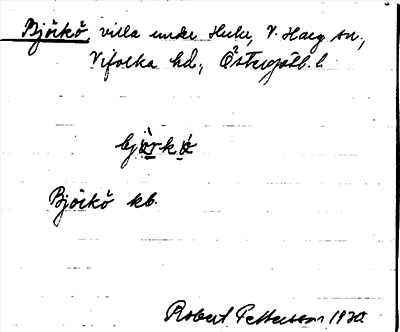 Björkö, villa under Hulu, V. Harg sn.,
Vifolka hd., Östergötl. l.
bjö̀rkö́
Björkö kb.
Robert Pettersson 1920